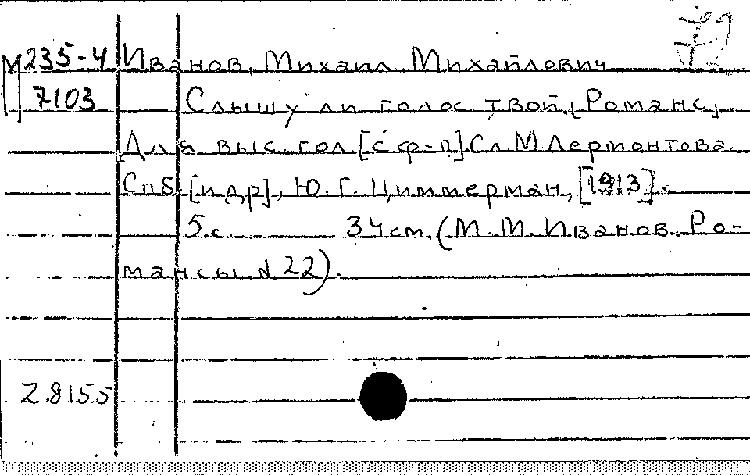 М 235-4 Иванов, Михаил Михайлович
7103 Слышу ли голос твой. [Романс]
Для выс. гол. [с ф-п] Сл. М. Лермонтова
Спб. [и др.], Ю. Г. Циммерман, [1913].
5 с. 34 см. (М. М. Иванов. Ро-
мансы № 22).
Z.8155